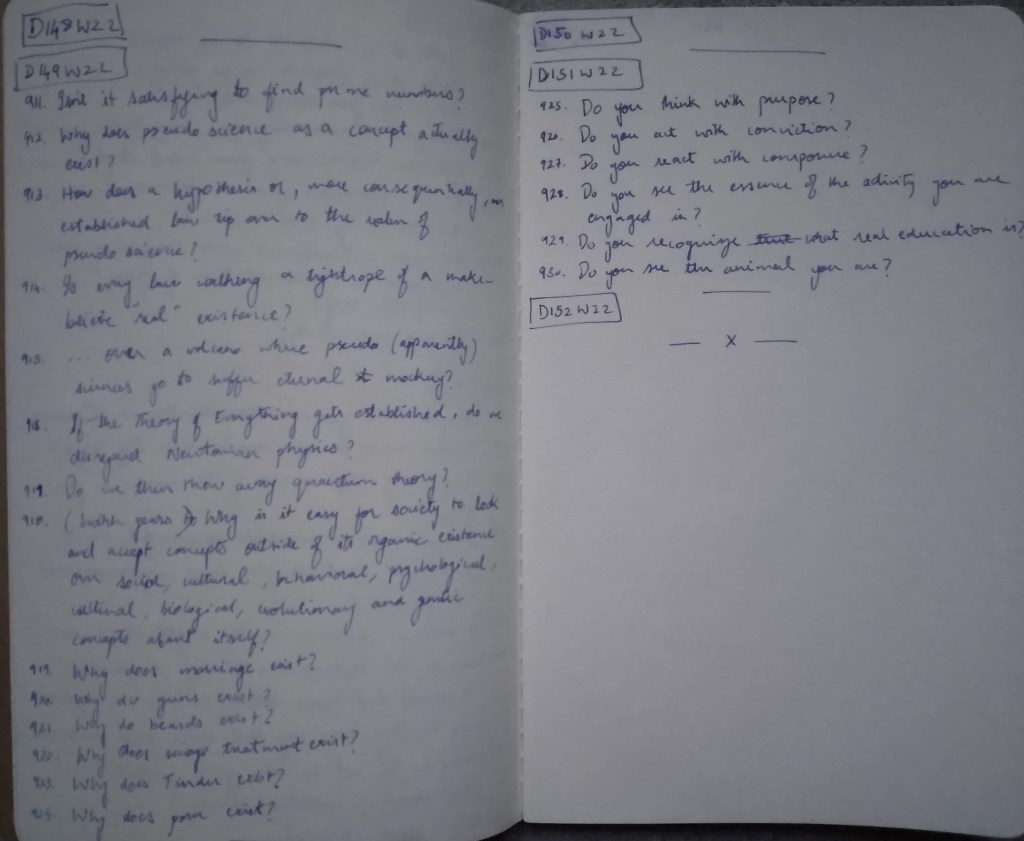 D148W22
D149W22
911. Isn't it satisfying to find prime numbers?
912. Why does pseudo science as a concept actually
exist?
913. How does a hypothesis or, more consequentially, an
established law zip over to the realm of
pseudo science?
914. Is every law walking a tightrope of a make-
believe "real" existence?
915. ... over a volcano where pseudo (apparently)
sciences go to suffer eternal mockery?
916. If the Theory of Everything gets established, do we
disregard Newtonian physics?
917. Do we then throw away quantum theory?
918. (Switch gears) Why is it easy for society to look
and accept concepts outside of its organic existence
over social, cultural, behavioral, psychological,
cultural, biological, evolutionary and genetic
concepts about itself?
919. Why does marriage exist?
920. Why do guns exist?
921. Why do beards exist?
922. Why does treatment exist?
923. Why does Tinder exist?
924. Why does porn exist?
D150W22
D151W22
925. Do you think with purpose?
926. Do you act with conviction?
927. Do you react with composure?
928. Do you see the essence of the activity you are
engaged in?
929. Do you recognize what real education is?
930. Do you see the animal you are?
D152W22
— x —